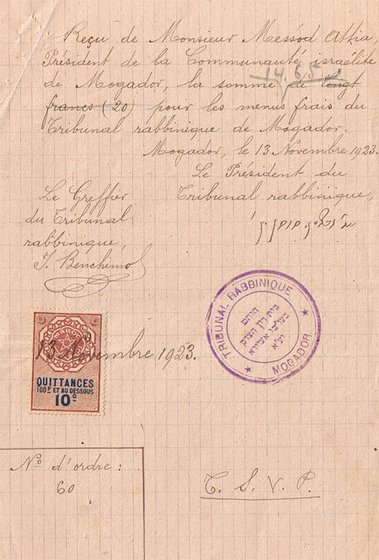 Reçu de Monsieur Messod Attia,
Président de la Communauté israélite
de Mogador, la somme de vingt
francs (20) pour les menus frais du
Tribunal rabbinique de Mogador.
Mogador, le 13 Novembre 1923.
Le Président du
Tribunal rabbinique,
Le Greffier
du Tribunal
rabbinique,
J. Benchimol
TRIBUNAL RABBINIQUE
MOGADOR
13 Novembre 1923.
QUITTANCES
100F ET AU DESSOUS
10c
No d'ordre :
60
T. S. V. P.